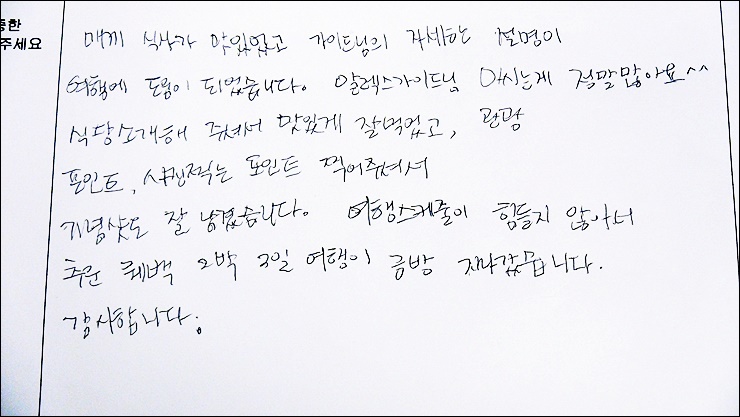 통한
주세요
매끼 식사가 맛있었고 가이드님의 자세한 설명이
여행에 도움이 되었습니다. 알렉스가이드님 아시는게 정말많아요^^
식당소개해 주셔서 맛있게 잘먹었고, 관광
포인트, 사진찍는 포인트 찍어주셔서
기념샷도 잘 남겼습니다. 여행스케줄이 힘들지 않아서
추운 퀘백 2박 3일 여행이 금방 지나갔습니다.
감사합니다.